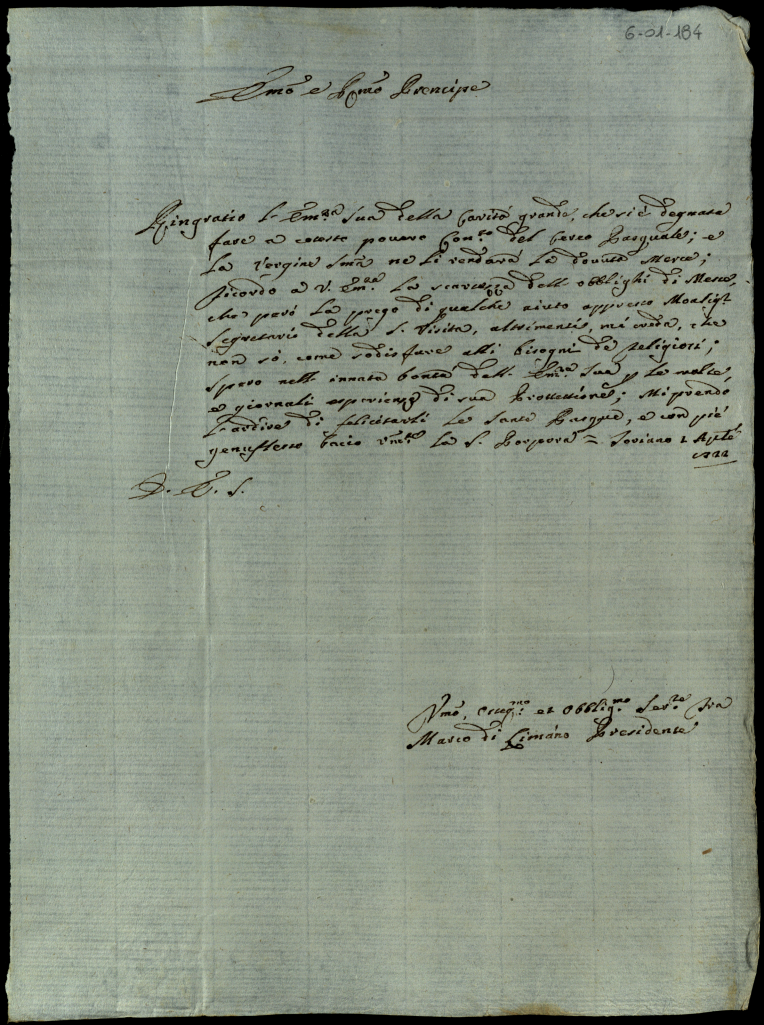 6-01-184
Emo e Rmo Prencipe
Ringratio l'Em.za Sua della Carità grande, che si è degnata
fare a cotesto povero Con.to del Cereo Pasquale; e
la Vergine Sma ne li renderà la dovuta Mercè;
ricordo a V. Em.za la scarsezza dell'obblighi di Messe,
che però la prego di qualche aiuto appresso Monsig.r
Segretario della S. Visita, altrimenti, mi creda, che
non só, come sodisfare alli bisogni de religiosi;
spero nell'innata bontà dell'Em.za Sua p le molte,
e giornali esperienze di sua Protettione; Mi prendo
l'ardire di felicitarli le Sante Pasque, e con piè
genuflesso bacio Vmte la S. Porpora = Soriano 2 Aple
1722
D. E. S.
Vmo, Osseq.mo et Obblig.mo Ser.re Fra
Marco di Limáno Presidente